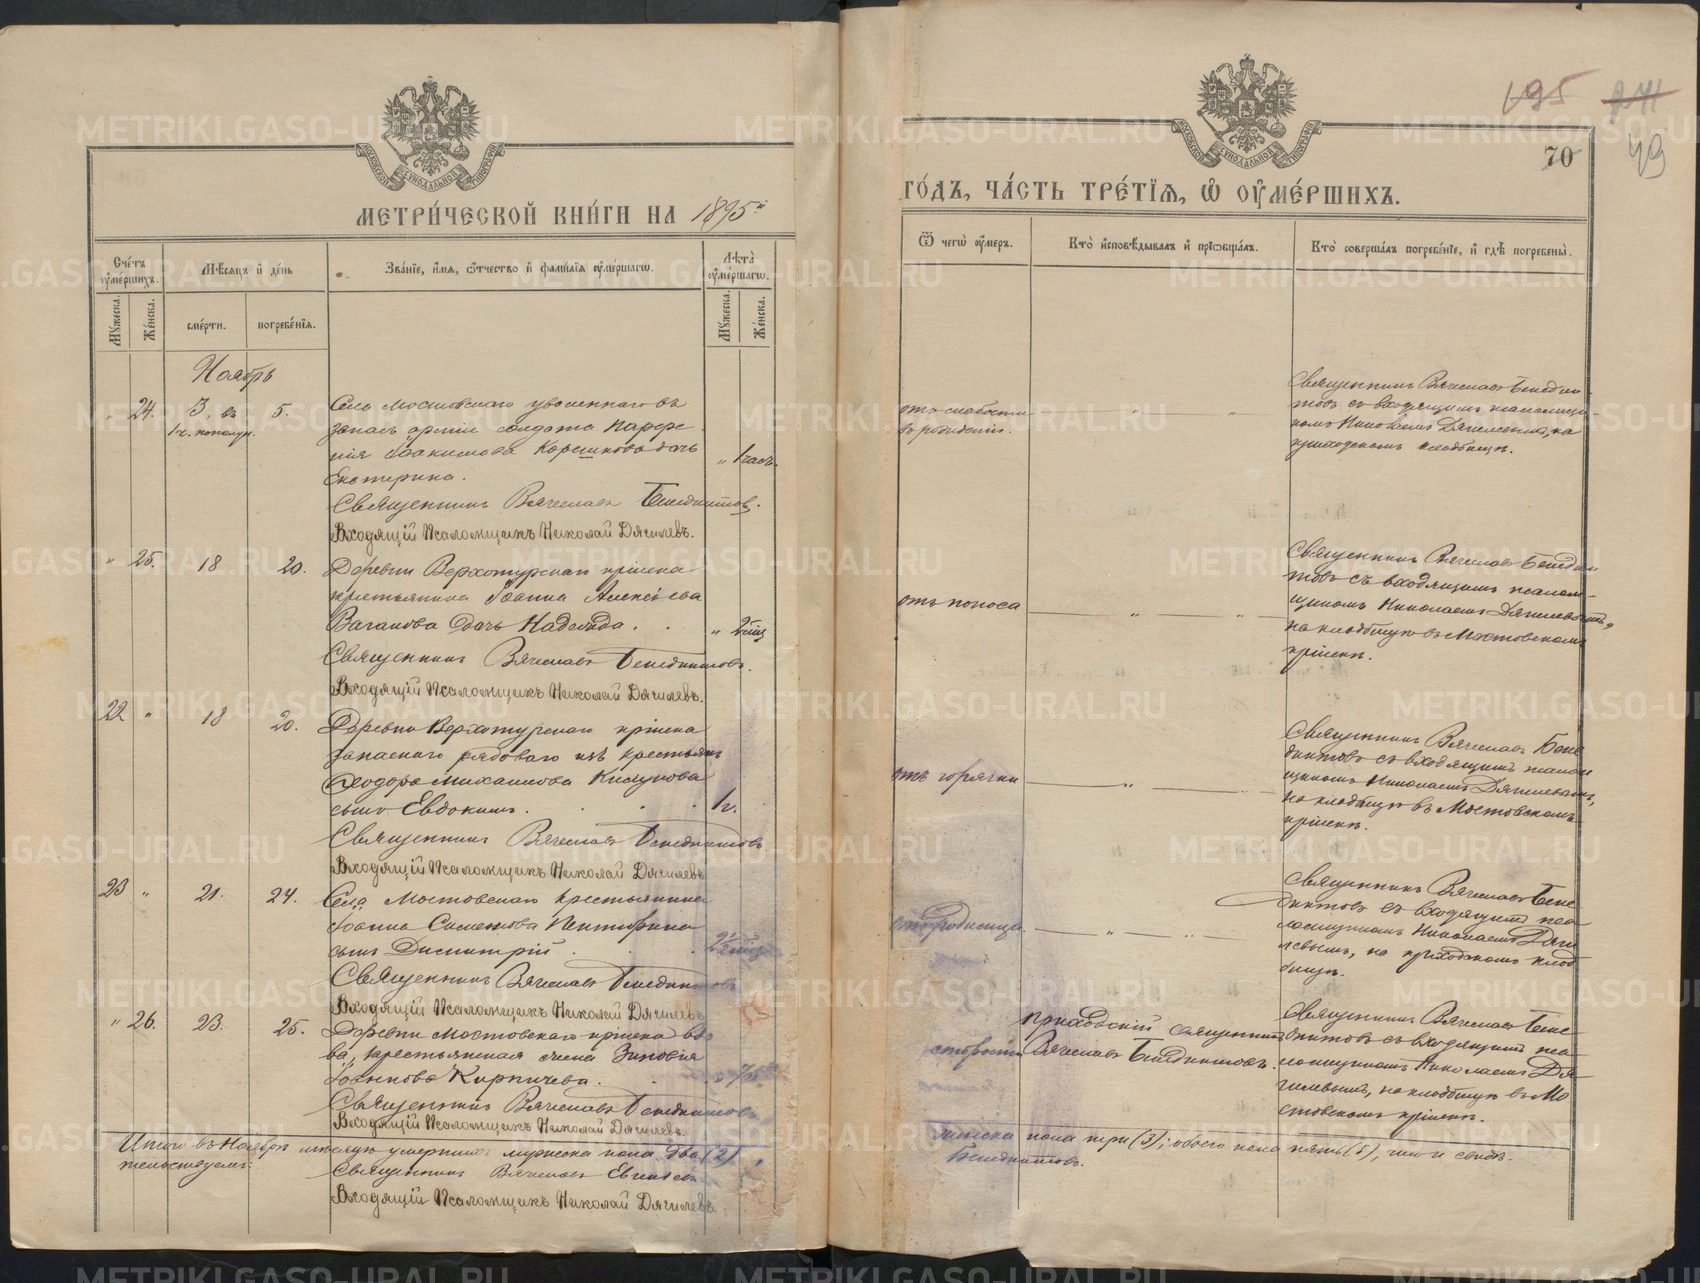 МЕТРИ́ЧЕСКОЙ КНИ́ГИ НА 1895й
ГО́ДЪ, ЧА́СТЬ ТРЕ́ТЇѦ, Ѽ ОУ҆МЕ́РШИХЪ.
195
70
49
МОСКОВСКОЙ СѴНОДАЛЬНОЙ ТИПОГРАФІИ
Сче́тъ оу҆ме́ршихъ.
Мꙋ́жеска.
Же́нска.
Мѣ́сѧцъ и҆ де́нь
сме́рти.
погребе́нїѧ.
Зва́нїе, и҆́мѧ, ѻ҆́тчество и҆ фами́лїѧ оу҆ме́ршагѡ.
Лѣ́та оу҆ме́ршагѡ.
Мꙋ́жеска.
Же́нска.
Ѿ чегѡ̀ оу҆́меръ.
Кто̀ и҆сповѣ́дывалъ и҆ прїѡбща́лъ.
Кто̀ соверша́лъ погребе́нїе, и҆ гдѣ̀ погребены̀.
Ноябрь
" 24. 3, въ 5.
1 ч. пополун.
Села Мостовскаго уволеннаго въ
запасъ арміи солдата Парфе
нія Іоакимова Корешкова дочь
Екатерина.
" 1 часъ.
Священникъ Вячеславъ Бенедиктовъ.
Входящій Псаломщикъ Николай Дягилевъ.
отъ слабости
въ рожденіи.
" "
Священникъ Вячеславъ Бенедик
товъ съ входящимъ псаломщи-
комъ Николаемъ Дягилевымъ, на
приходскомъ кладбищѣ.
" 25. 18 20.
Деревни Верхотурскаго пріиска
крестьянина Іоанна Алексѣева
Ваганова дочь Надежда.
" 2 мѣс.
Священникъ Вячеславъ Бенедиктовъ.
Входящій Псаломщикъ Николай Дягилевъ.
отъ поноса
" "
Священникъ Вячеславъ Бенедик-
товъ съ входящимъ псалом-
щикомъ Николаемъ Дягилевымъ,
на кладбищѣ въ Мостовскомъ
пріискѣ.
22 " 18 20.
Деревни Верхотурскаго пріиска
запаснаго рядоваго изъ крестьянъ
Ѳеодора Михаилова
сынъ Евдокимъ.
1 г.
Священникъ Вячеславъ Бенедиктовъ
Входящій Псаломщикъ Николай Дягилевъ
отъ горячки
"
Священникъ Вячеславъ Бене
диктовъ съ входящимъ псалом
щикомъ Николаемъ Дягилевымъ,
на кладбищѣ въ Мостовскомъ
пріискѣ.
23 " 21. 24.
Села Мостовскаго крестьянина
Іоанна
сынъ Димитрій
Священникъ Вячеславъ Бенедиктовъ
Входящій Псаломщикъ Николай Дягилевъ
отъ родимца
" "
Священникъ Вячеславъ Бене
диктовъ съ входящимъ пса
ломщикомъ Николаемъ Дяги
левымъ, на приходскомъ клад
бищѣ.
" 26. 23. 25.
Деревни Мостовскаго пріиска вдо
ва, крестьянская жена Зиновія
Іоаннова Кирпичева.
" 75
Священникъ Вячеславъ Бенедиктовъ
Входящій Псаломщикъ Николай Дягилевъ.
старости
приходскій священникъ
Вячеславъ Бенедиктовъ.
Священникъ Вячеславъ Бене
диктовъ съ входящимъ пса
ломщикомъ Николаемъ Дя
гилевымъ, на кладбищѣ въ Мо
стовскомъ пріискѣ.
Итого въ Ноябрѣ мѣсяцѣ умершихъ мужеска пола два (2),
женска пола три (3); обоего пола пять (5), что и свидѣ-
тельствуемъ:
Священникъ Вячеславъ
Бенедиктовъ.
Входящій Псаломщикъ Николай Дягилевъ.
METRIKI.GASO-URAL.RU